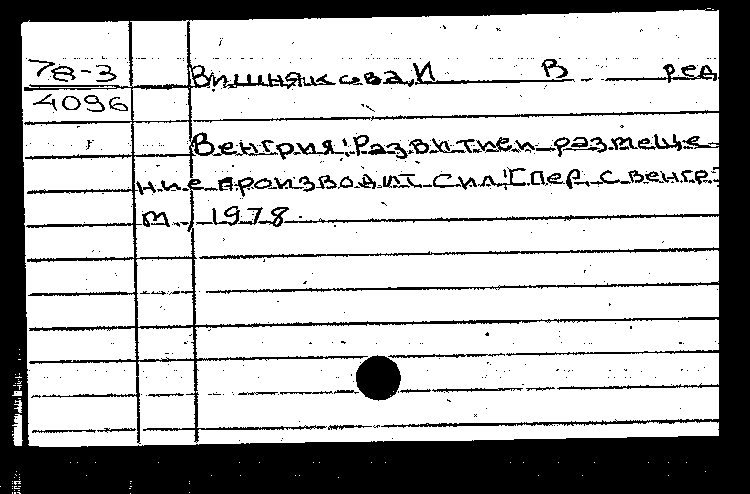 78-3 Вишнякова, И В ред
4096
Венгрия: Развитие и размеще-
ние производит сил: [Пер. с венгр.]
М., 1978